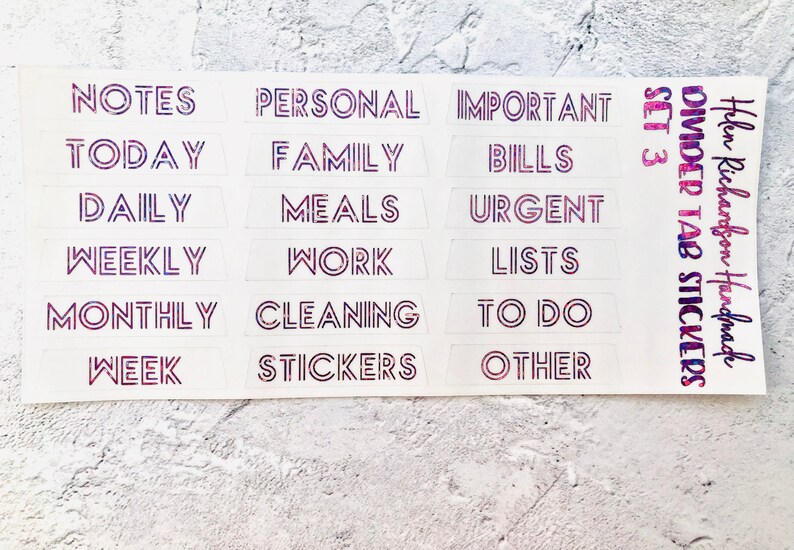 NOTES
TODAY
DAILY
WEEKLY
MONTHLY
WEEK
PERSONAL
FAMILY
MEALS
WORK
CLEANING
STICKERS
IMPORTANT
BILLS
URGENT
LISTS
TO DO
OTHER
Helen Richardson Handmade
DIVIDER TAB STICKERS
SET 3